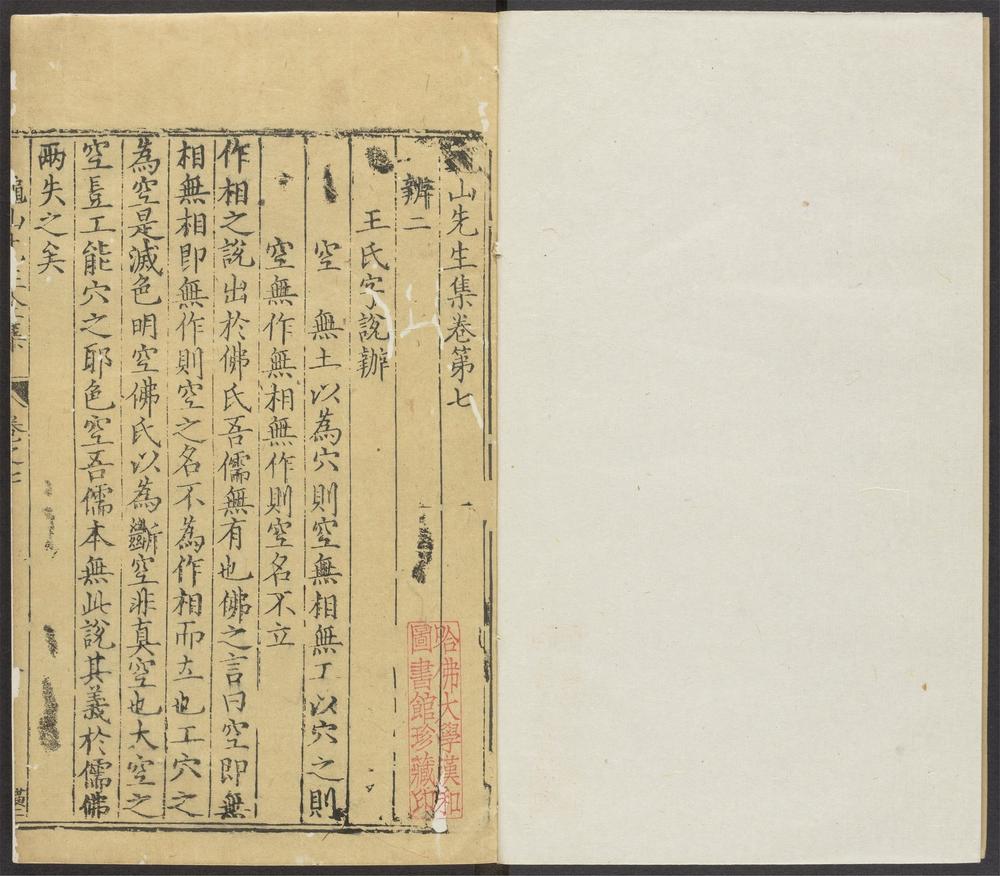 山先生集卷第七
辨二
王氏字說辨
空　無土以為穴則空無相無工以穴之則
空無作無相無作則空名不立
作相之說出於佛氏吾儒無有也佛之言曰空即無
相無相即無作則空之名不為作相而立也工穴之
為空是滅色明空佛氏以為斷空非真空也太空之
空豈工能穴之耶色空吾儒本無此說其義於儒佛
兩失之矣
哈佛大學漢和
圖書館珍藏印